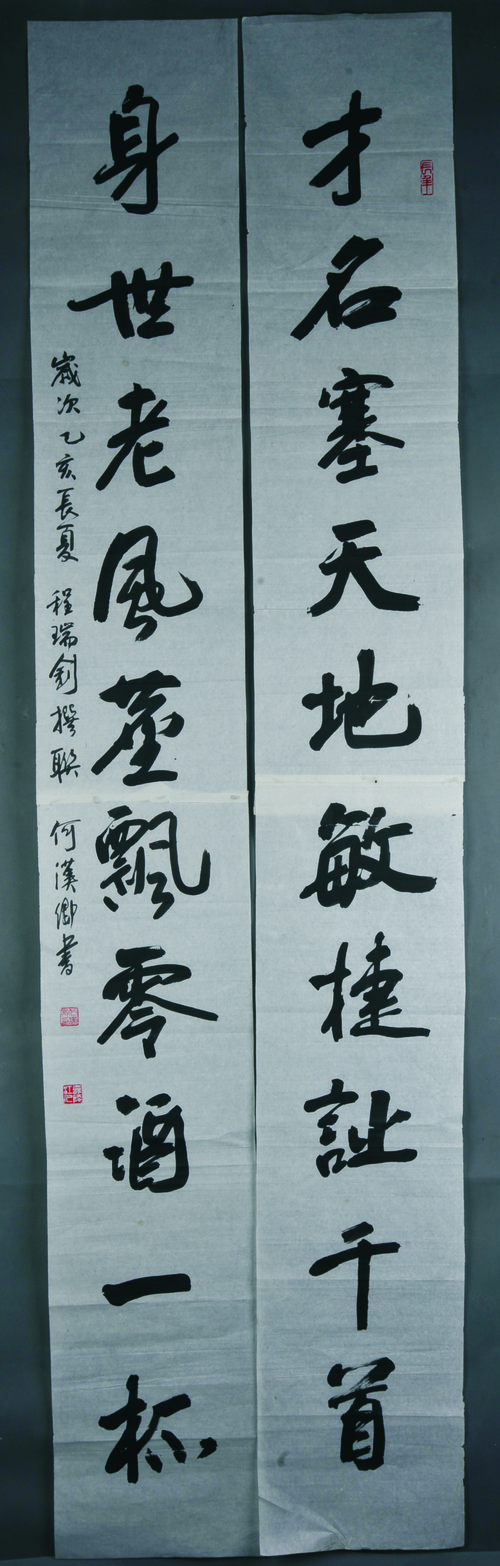 才名塞天地敏捷詩千首
身世老風塵飄零酒一杯
歲次乙亥長夏 程瑞釗撰聯 何漢卿書